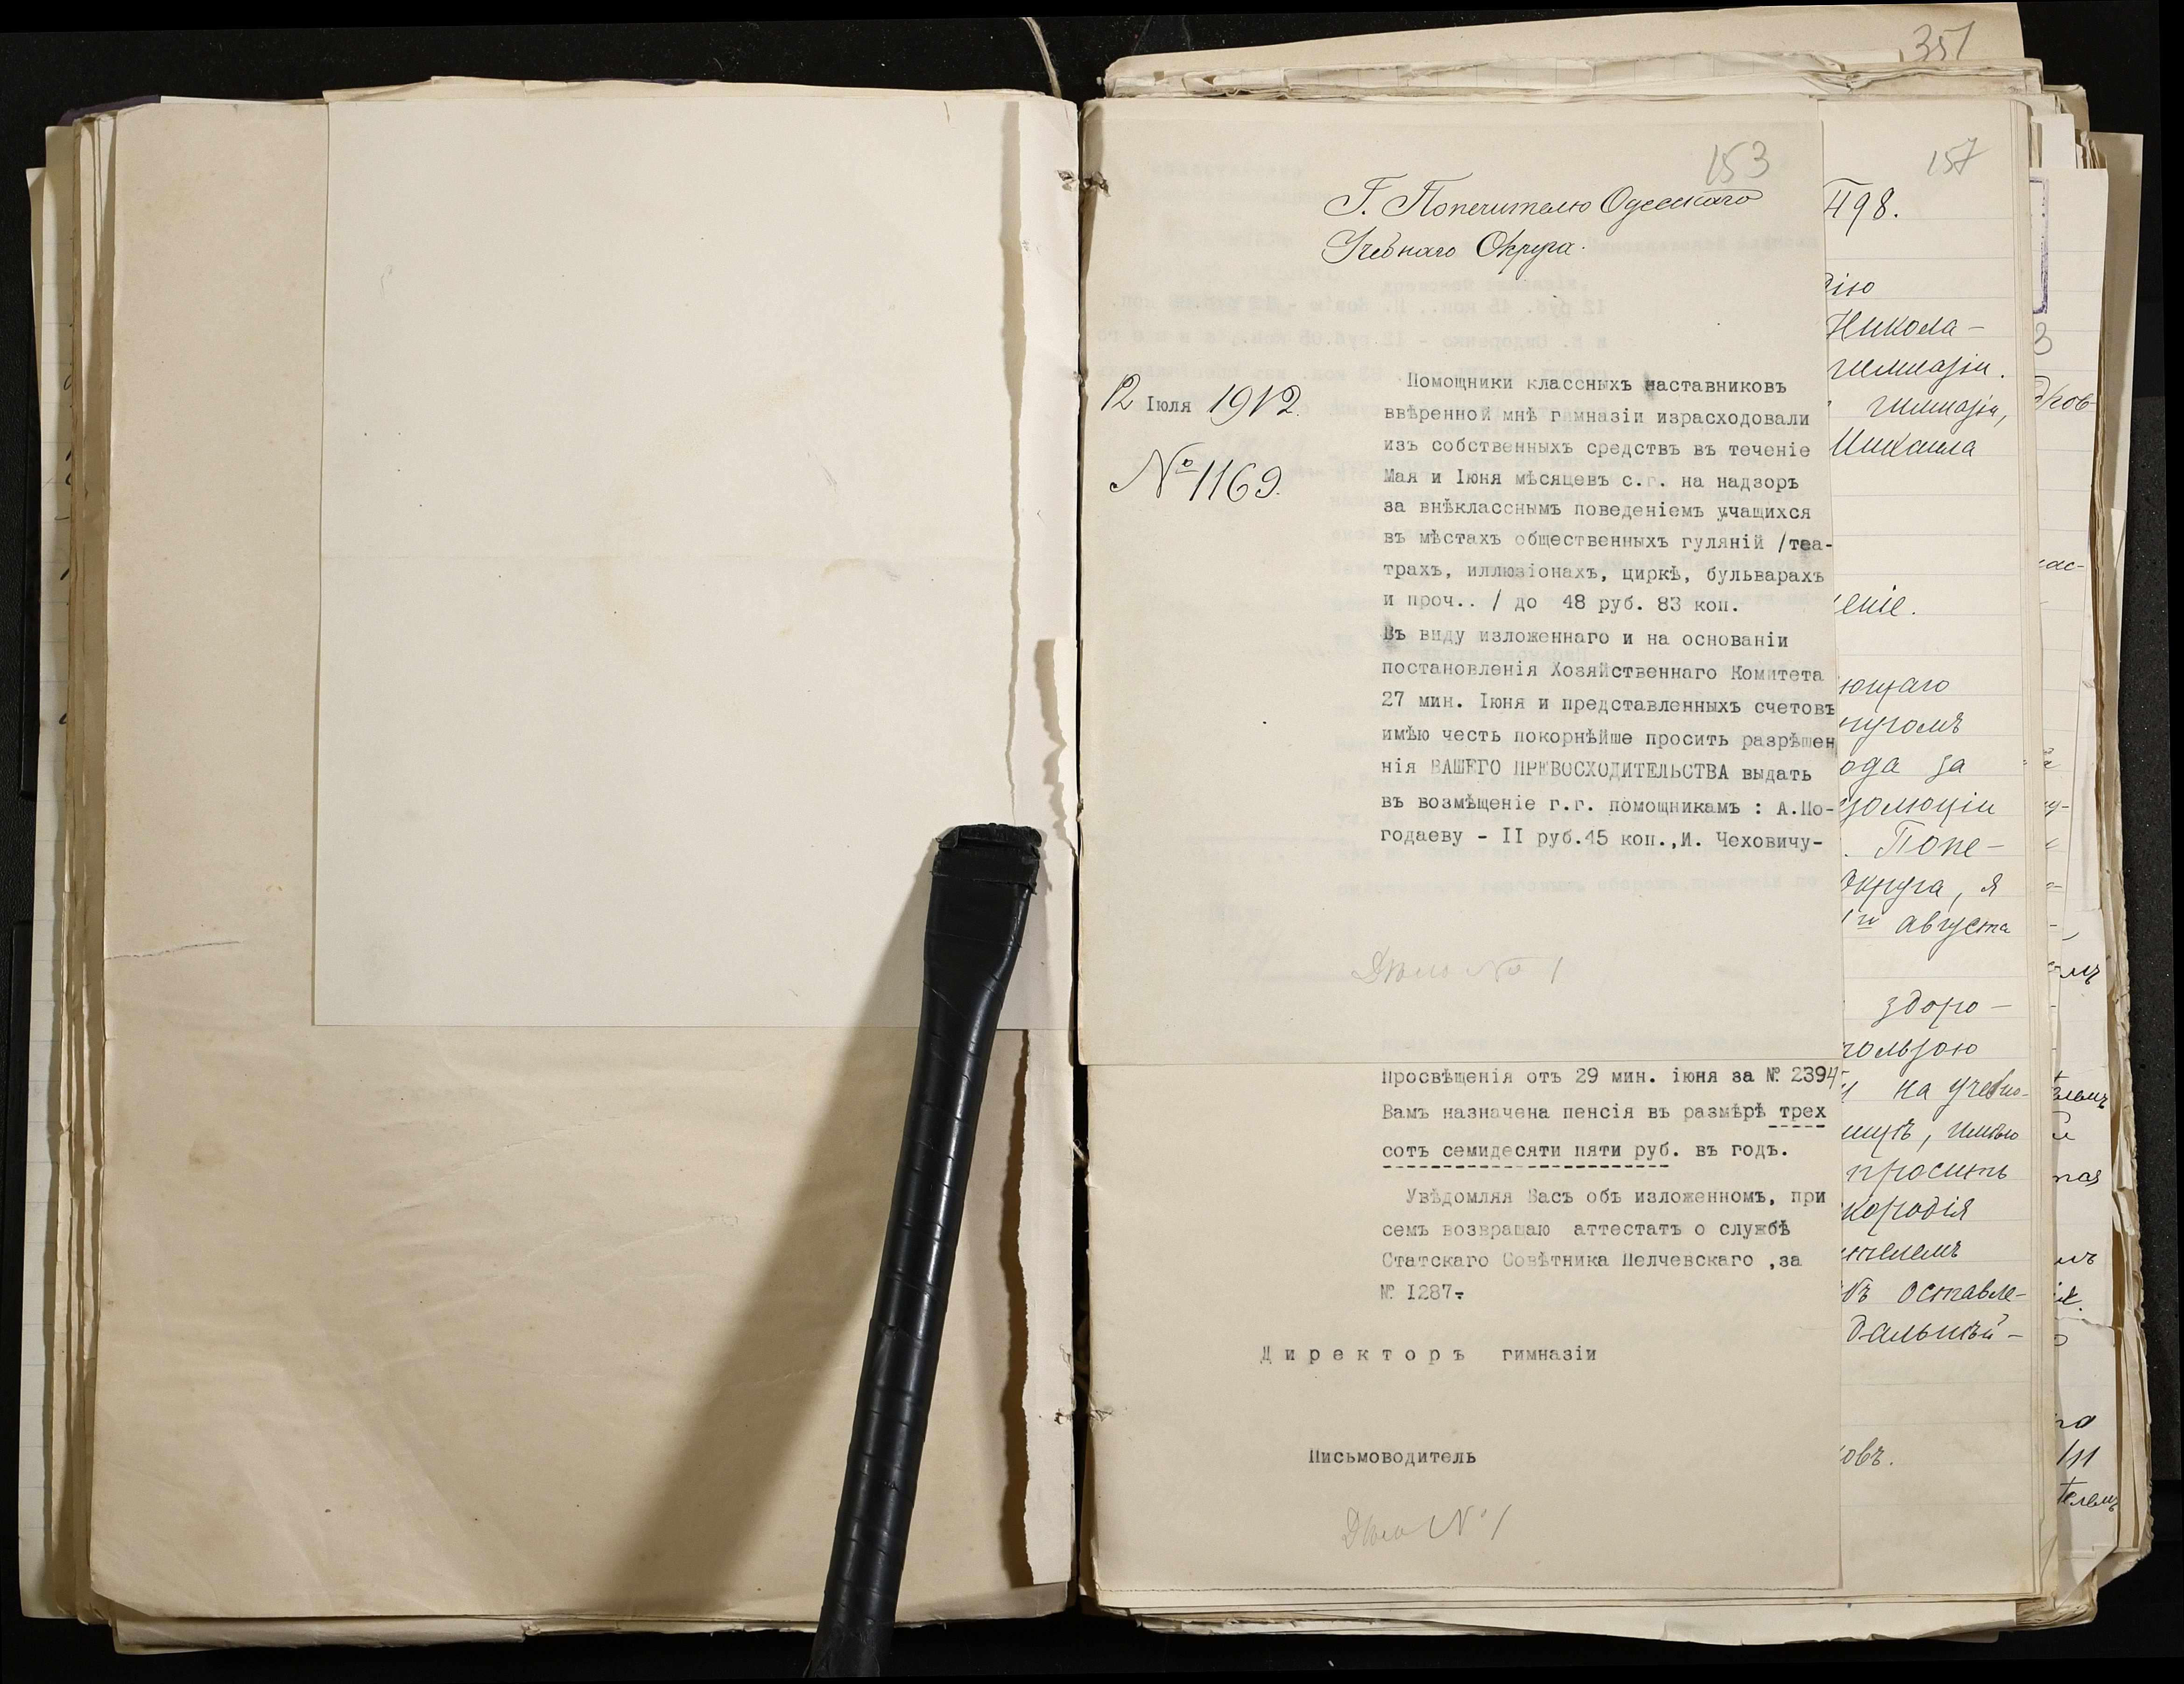 351
153
Г. Попечителю Одесскаго
Учебнаго Округа.
12 Іюля 1912.
№ 1169.
Помощники классныхъ наставниковъ
ввѣренной мнѣ гимназіи израсходовали
изъ собственныхъ средствъ въ теченіе
Мая и Іюня мѣсяцевъ с.г. на надзоръ
за внѣкласснымъ поведеніемъ учащихся
въ мѣстахъ общественныхъ гуляній /теа-
трахъ, иллюзіонахъ, циркѣ, бульварахъ
и проч.. / до 48 руб. 83 коп.
Въ виду изложеннаго и на основаніи
постановленія Хозяйственнаго Комитета
27 мин. Іюня и представленныхъ счетовъ
имѣю честь покорнѣйше просить разрѣшен
нія ВАШЕГО ПРЕВОСХОДИТЕЛЬСТВА выдать
въ возмѣщеніе г.г. помощникамъ : А.По-
годаеву - II руб.45 коп.,И. Чеховичу-
Дѣло № 1
Просвѣщенія отъ 29 мин. іюня за № 2394
Вамъ назначена пенсія въ размѣрѣ трех
сотъ семидесяти пяти руб. въ годъ.
Увѣдомляя Васъ объ изложенномъ, при
семъ возвращаю аттестатъ о службѣ
Статскаго Совѣтника Пелчевскаго ,за
№ I287-
Директоръ гимназіи
Письмоводитель
Дѣло № 1
157
498.
дію
Никола-
гимназіи.
гимназіи,
Михаила
еніе.
ющаго
ода за
золюціи
. Попе-
Округа, я
августа
здоро-
пользою
на учебно-
имѣю
просить
кородія
оставле-
дальнѣй-
овъ.